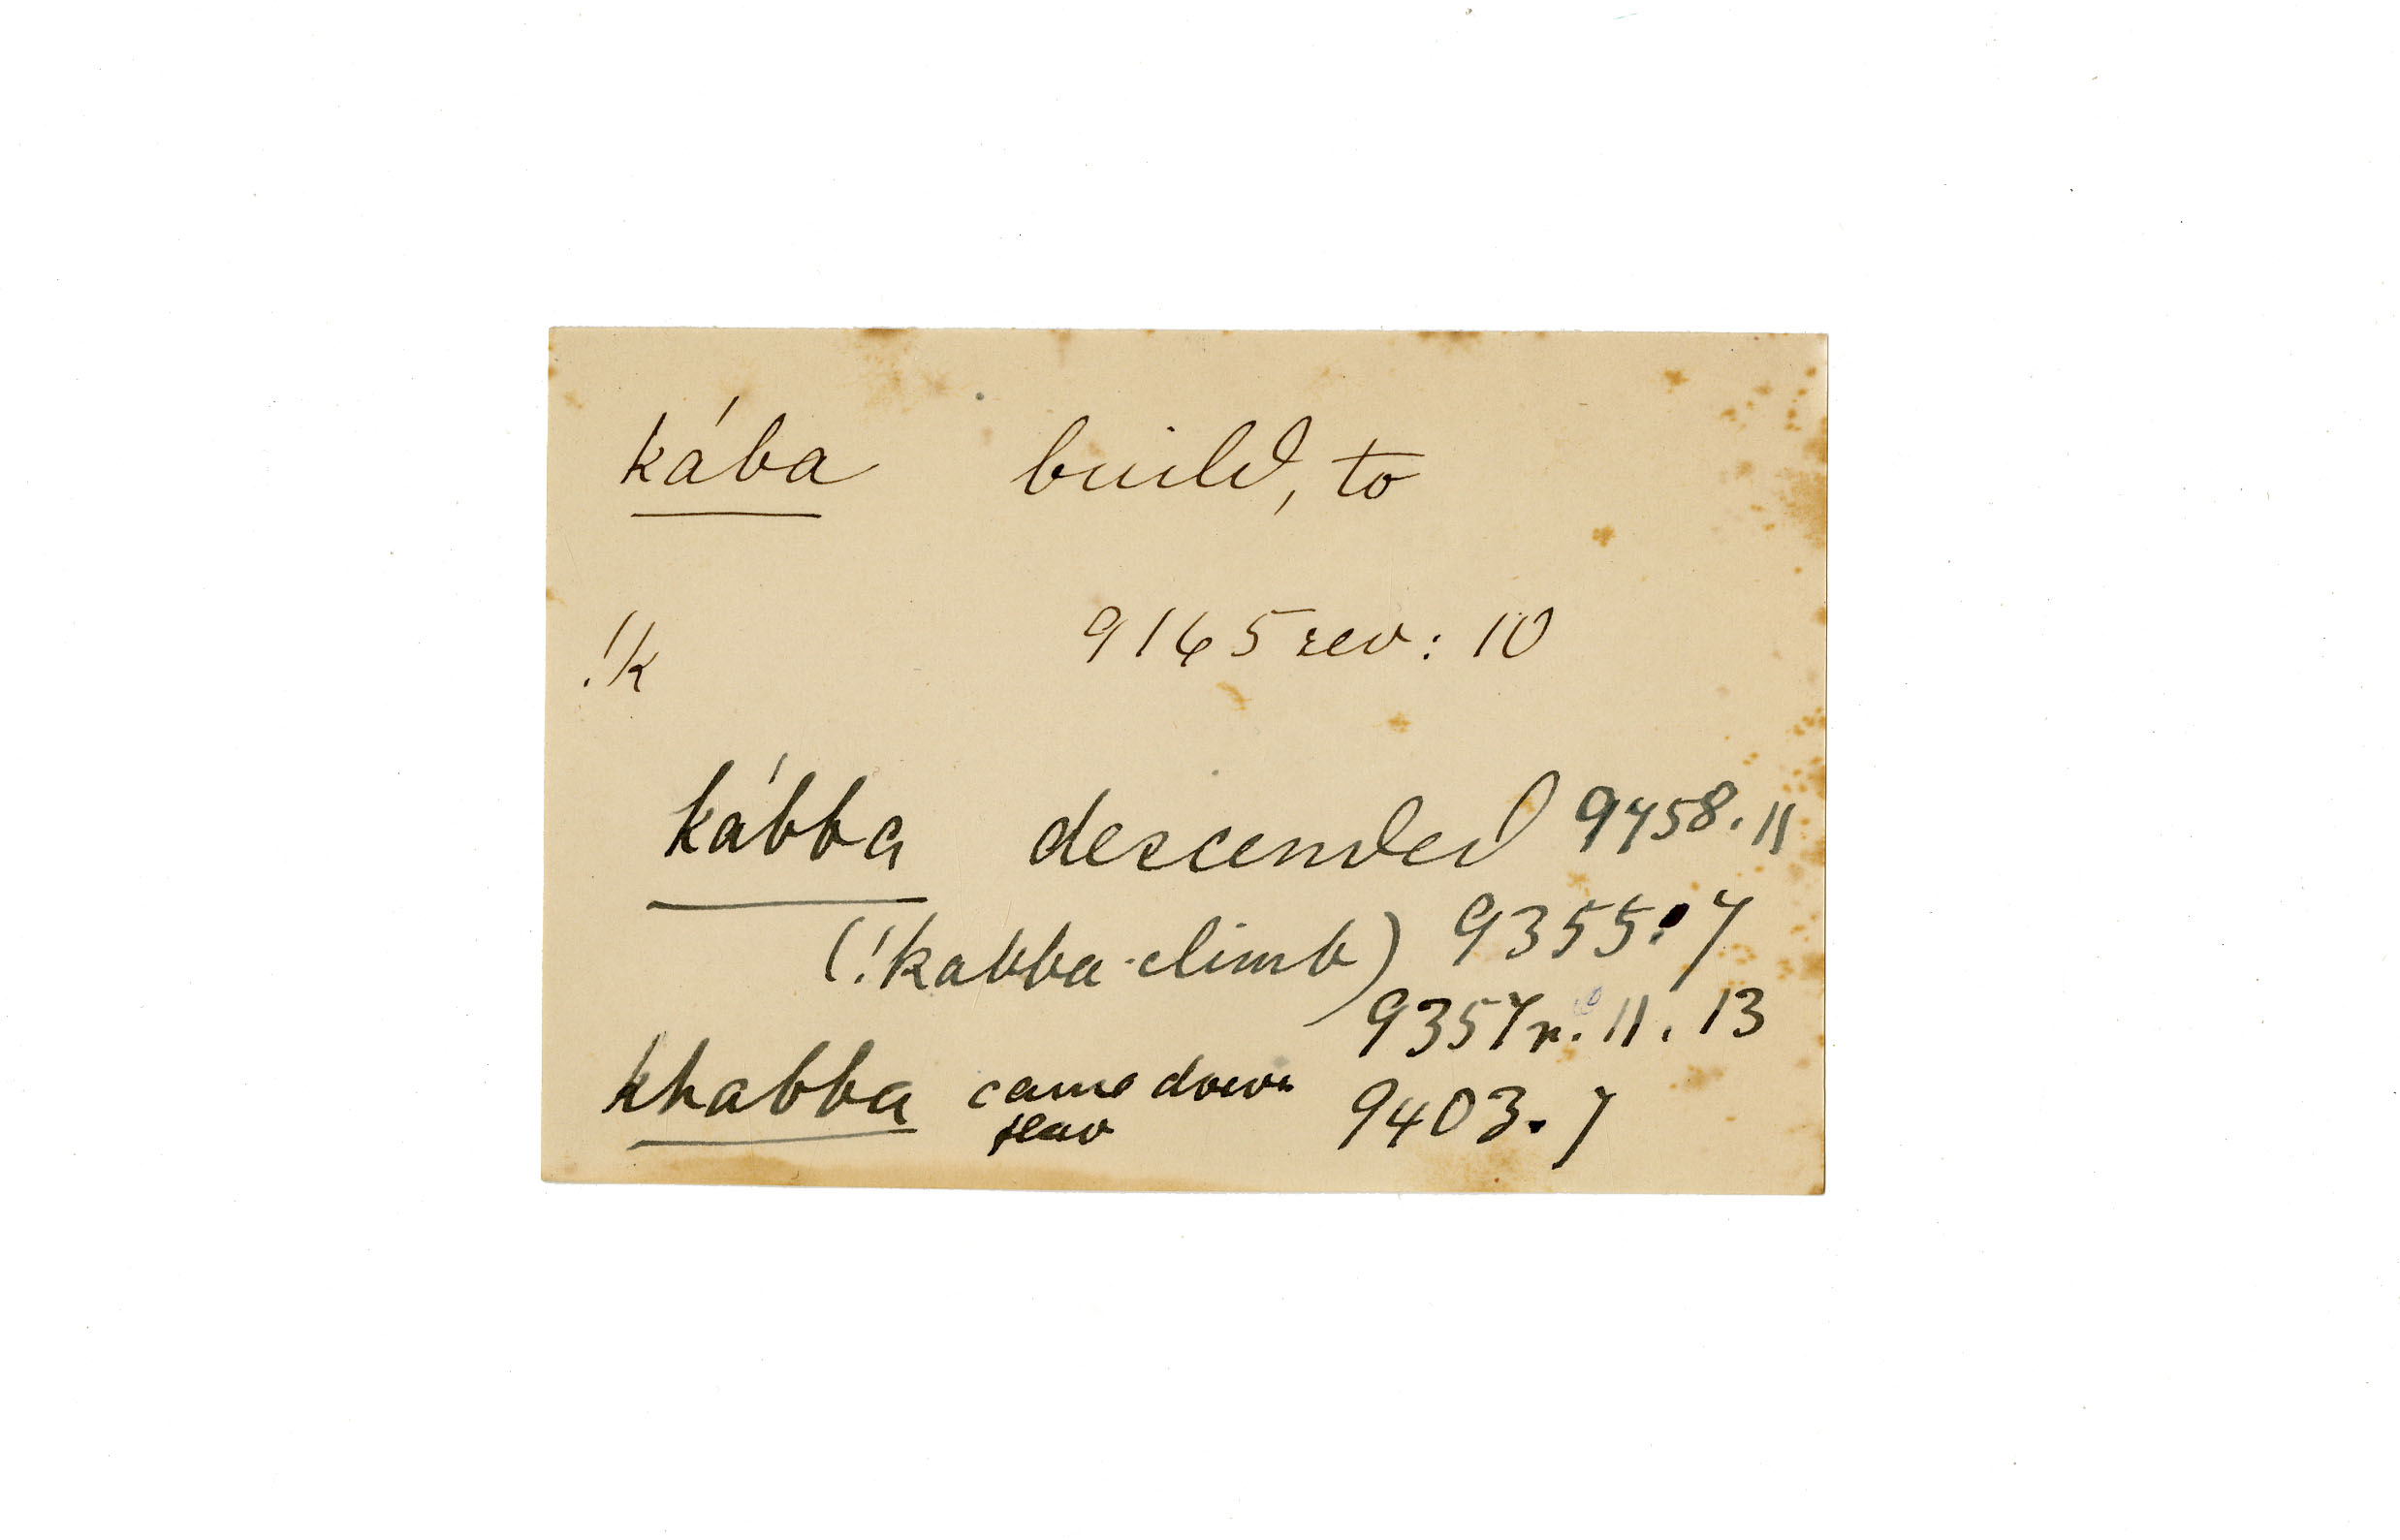 kába build, to
!k 9165 rev: 10
kábba descended 9458.11
(!kabba climb) 9355.7
9357r. 11. 13
khabba came down 9403.7